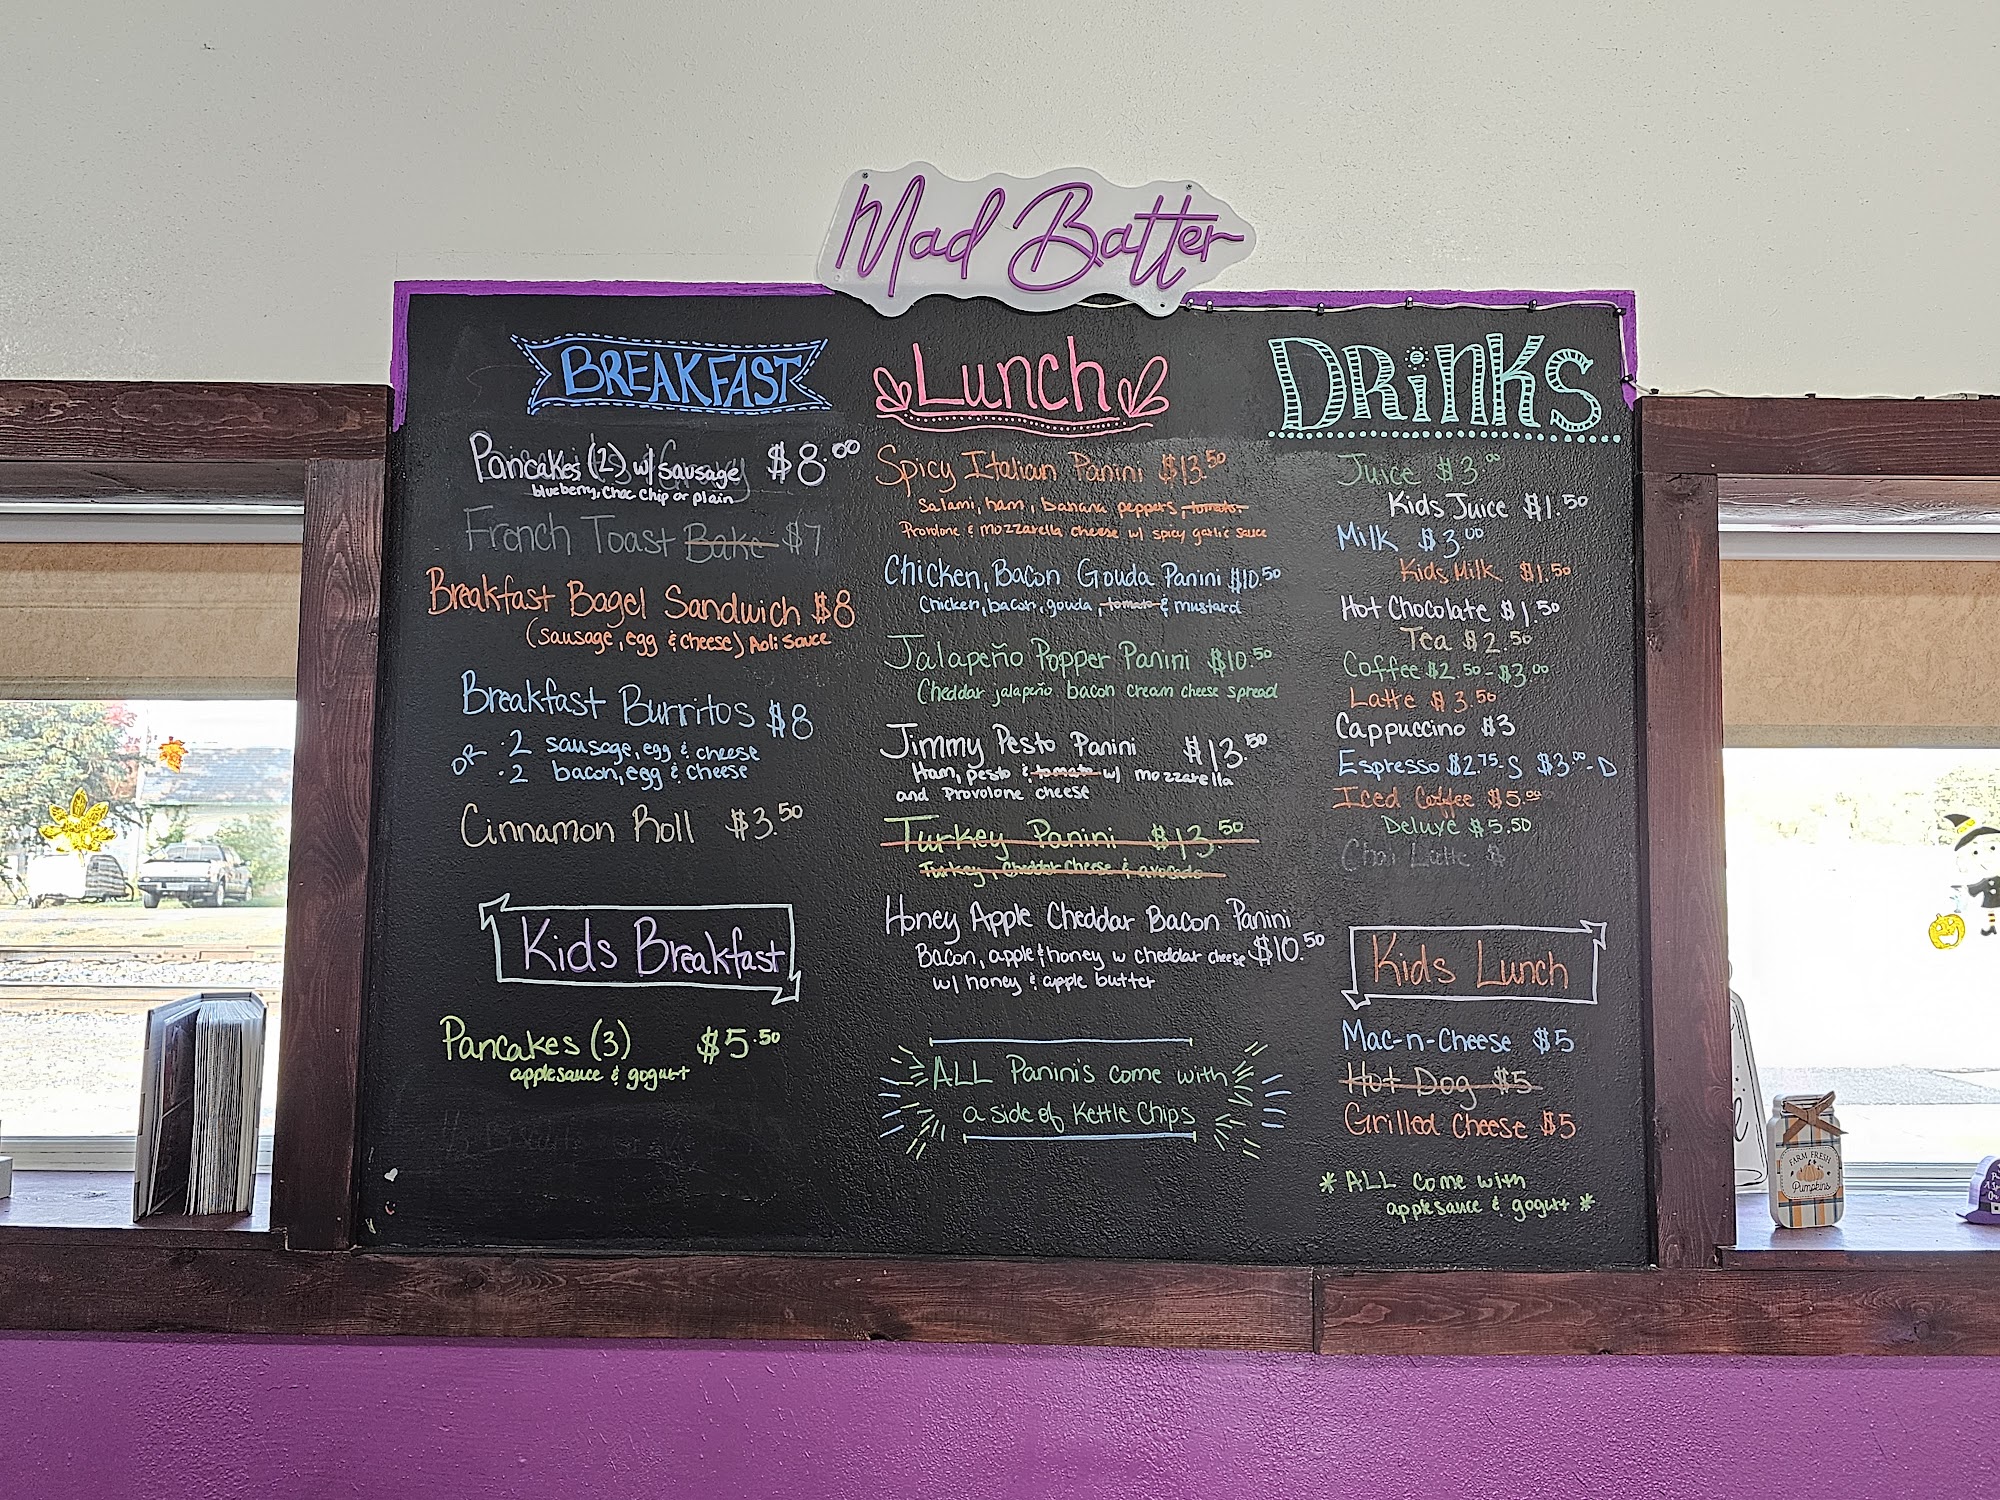 Mad Batter
BREAKFAST
Pancakes (2) w/ sausage $8.00
blueberry, choc chip or plain
French Toast Bake $7
Breakfast Bagel Sandwich $8
(sausage, egg & cheese) Aoli Sauce
Breakfast Burritos $8
OR · 2 sausage, egg & cheese
· 2 bacon, egg & cheese
Cinnamon Roll $3.50
Kids Breakfast
Pancakes (3) $5.50
applesauce & gogurt
Lunch
Spicy Italian Panini $13.50
Salami, ham, banana peppers, tomato,
Provolone & mozzarella cheese w/ spicy garlic sauce
Chicken, Bacon Gouda Panini $10.50
Chicken, bacon, gouda, tomato & mustard
Jalapeño Popper Panini $10.50
Cheddar jalapeño bacon cream cheese spread
Jimmy Pesto Panini $13.50
Ham, pesto & tomato w/ mozzarella
and Provolone cheese
Turkey Panini $13.50
Turkey, Cheddar cheese & avocado
Honey Apple Cheddar Bacon Panini
Bacon, apple & honey w cheddar cheese $10.50
w/ honey & apple butter
ALL Panini's come with
a side of Kettle Chips
DRiNKS
Juice $3.00
Kids Juice $1.50
Milk $3.00
Kids Milk $1.50
Hot Chocolate $1.50
Tea $2.50
Coffee $2.50-$3.00
Latte $3.50
Cappuccino $3
Espresso $2.75-S $3.00-D
Iced Coffee $5.00
Deluxe $5.50
Chai Latte $
Kids Lunch
Mac-n-Cheese $5
Hot Dog $5
Grilled Cheese $5
* ALL come with
applesauce & gogurt *
FARM FRESH
Pumpkins